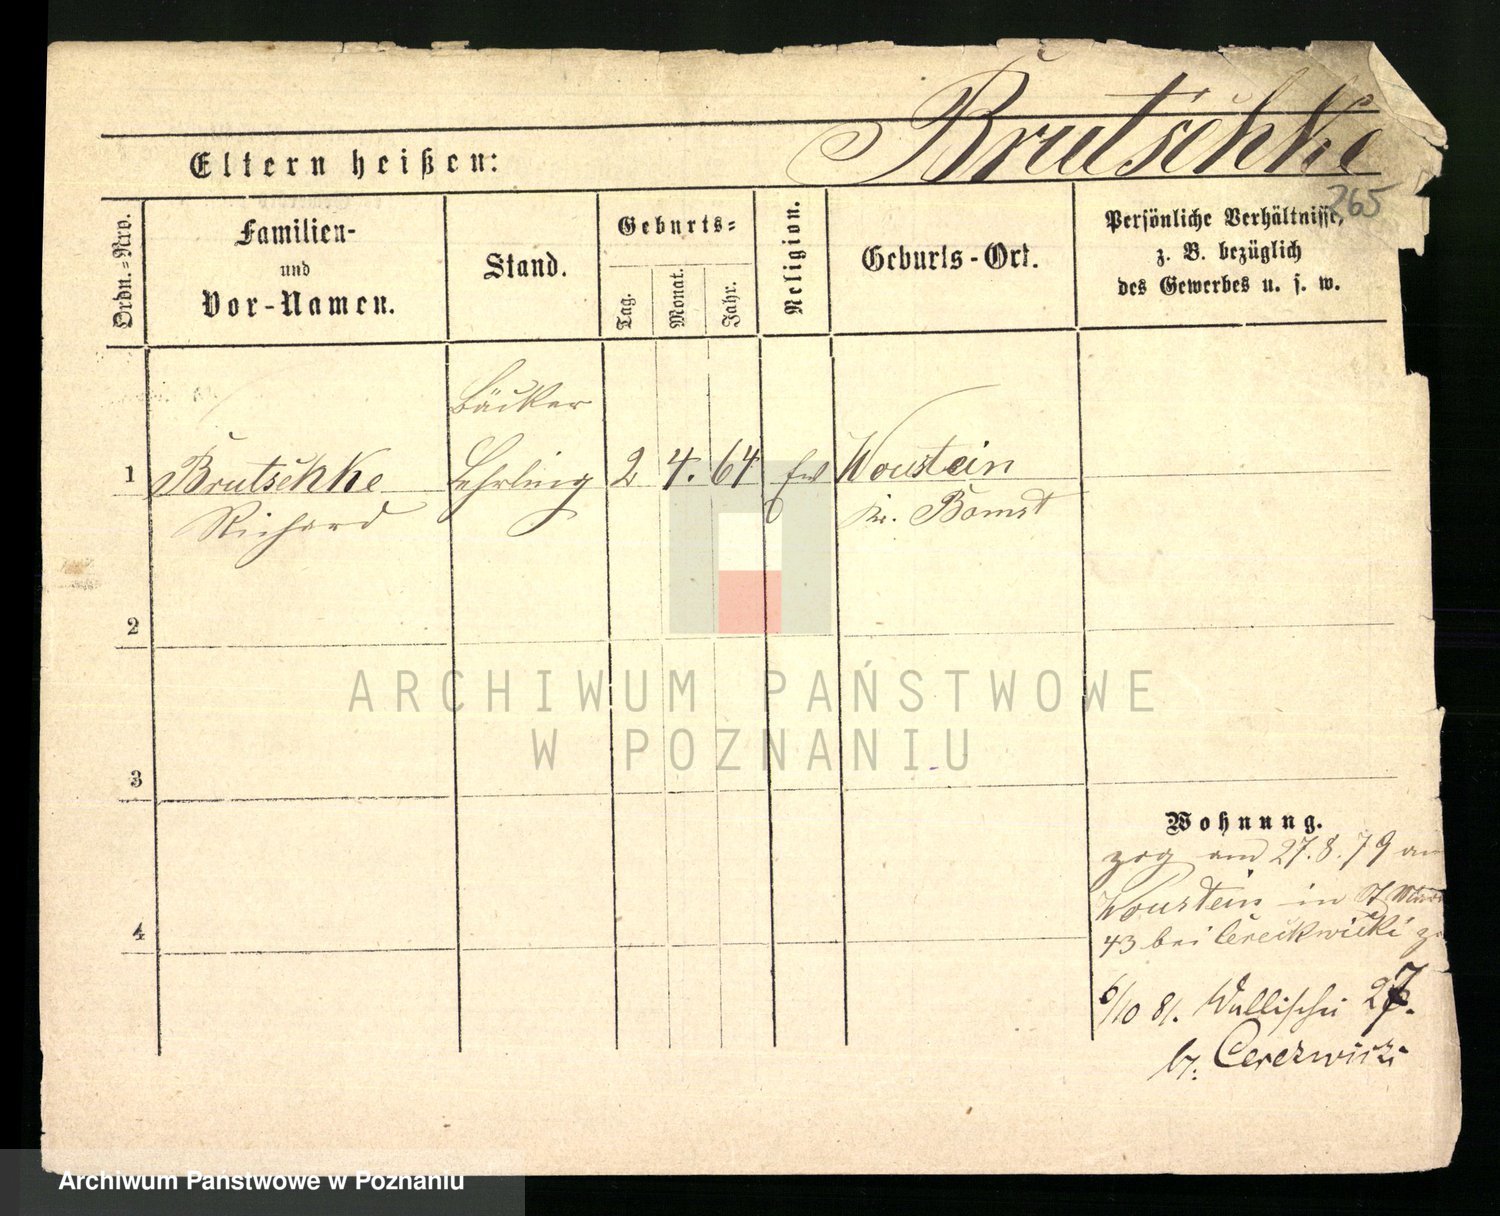 Brutschke
Eltern heißen:
265
Ordn.=Nro.
Familien-
und
Vor-Namen.
Stand.
Geburts=
Tag.
Monat.
Jahr.
Religion.
Geburts-Ort.
Persönliche Verhältnisse,
z. B. bezüglich
des Gewerbes u. s. w.
Bäcker
1 Brutschke Lehrling 2 4. 64 Ev Woustein
Richard Kr. Bomst
2
3
4
ARCHIWUM PAŃSTWOWE
W POZNANIU
Wohnung.
zog am 27.8.79 an
Woustein in St
43 bei Cereckwicki
6/10 81. Wallischei 27.
b. Cerekwicki
Archiwum Państwowe w Poznaniu